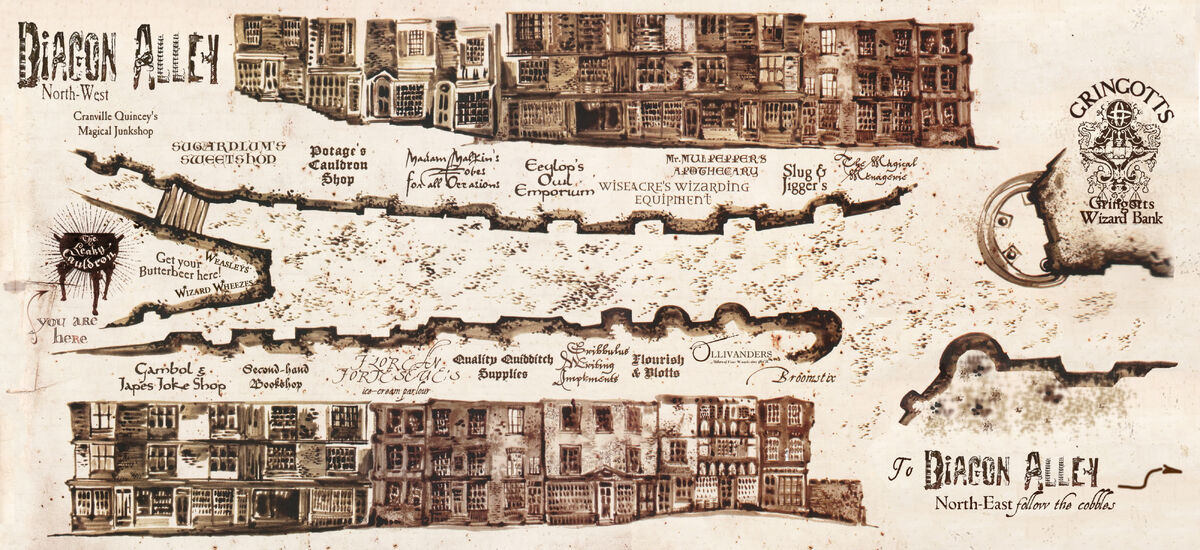 DIAGON ALLEY
North-West
Cranville Quincey's
Magical Junkshop
SUGARPLUM'S
SWEETSHOP
Potage's
Cauldron
Shop
Madam Malkin's
Robes
for all Occasions
Eeylop's
Owl
Emporium
Mr. MULPEPPER'S
APOTHECARY
WISEACRE'S WIZARDING
EQUIPMENT
Slug &
Jigger's
The Magical
Menagerie
GRINGOTTS
Gringotts
Wizard Bank
The
Leaky
Cauldron
Get your
Butterbeer here!
WEASLEYS'
WIZARD WHEEZES
you are
here
Gambol &
Japes Joke Shop
Second-hand
Bookshop
FLOREAN
FORTESCUE'S
ice-cream parlour
Quality Quidditch
Supplies
Scribbulus
Writing
Implements
Flourish
& Blotts
OLLIVANDERS
Broomstix
To DIAGON ALLEY
North-East follow the cobbles